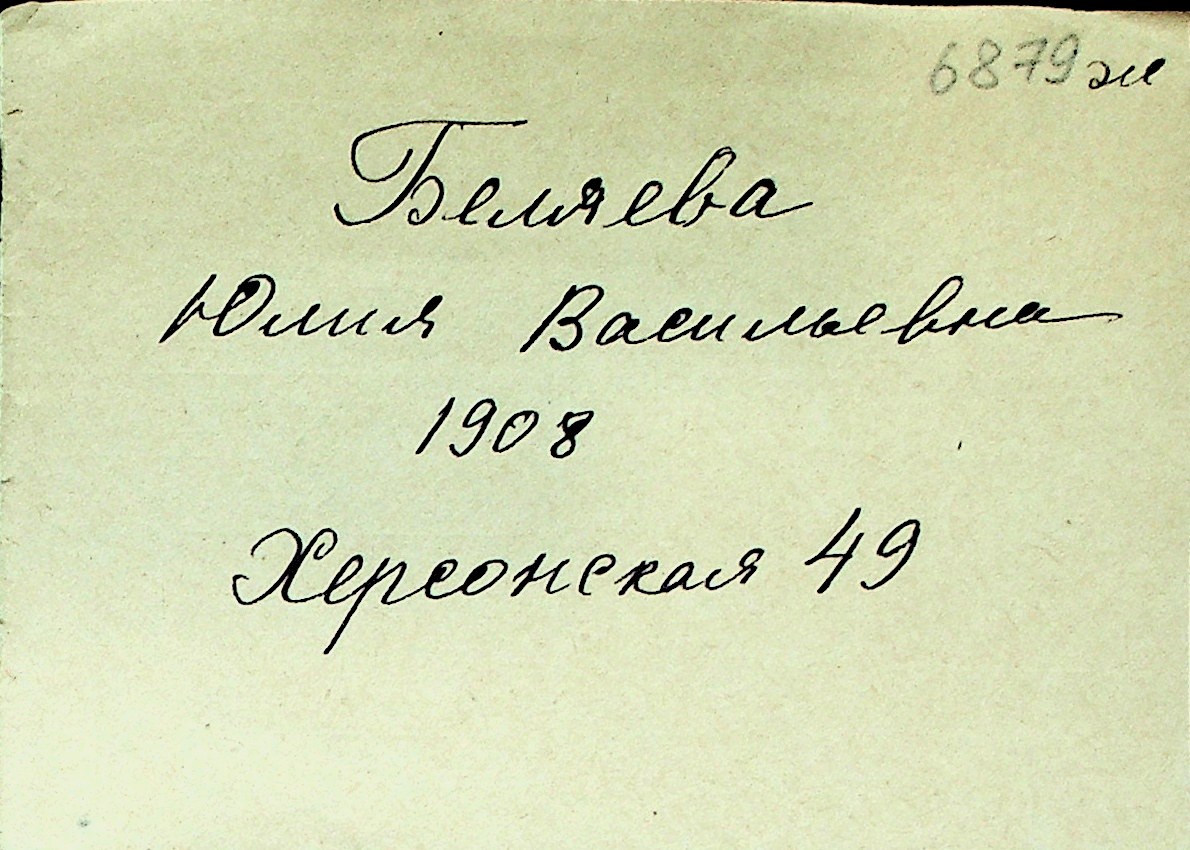 6879 ж
Беляева
Юлия Васильевна
1908
Херсонская 49